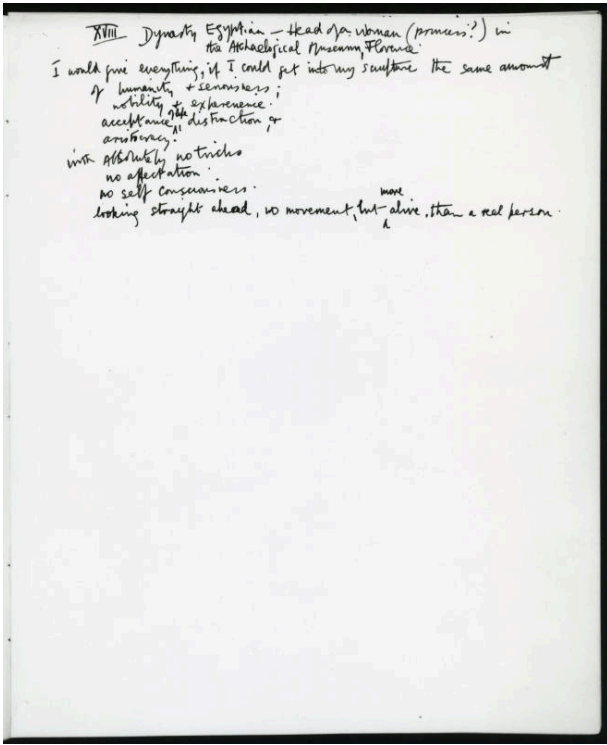 XVIII Dynasty Egyptian – Head of a woman (princess?) in
the Archaelogical Museum, Florence.
I would give everything, if I could get into my sculpture the same amount
of humanity + seriousness;
nobility + experience.
acceptance of life distinction, &
aristocracy.
with absolutely no tricks
no affectation.
no self consciousness.
looking straight ahead, no movement, but more alive, than a real person.